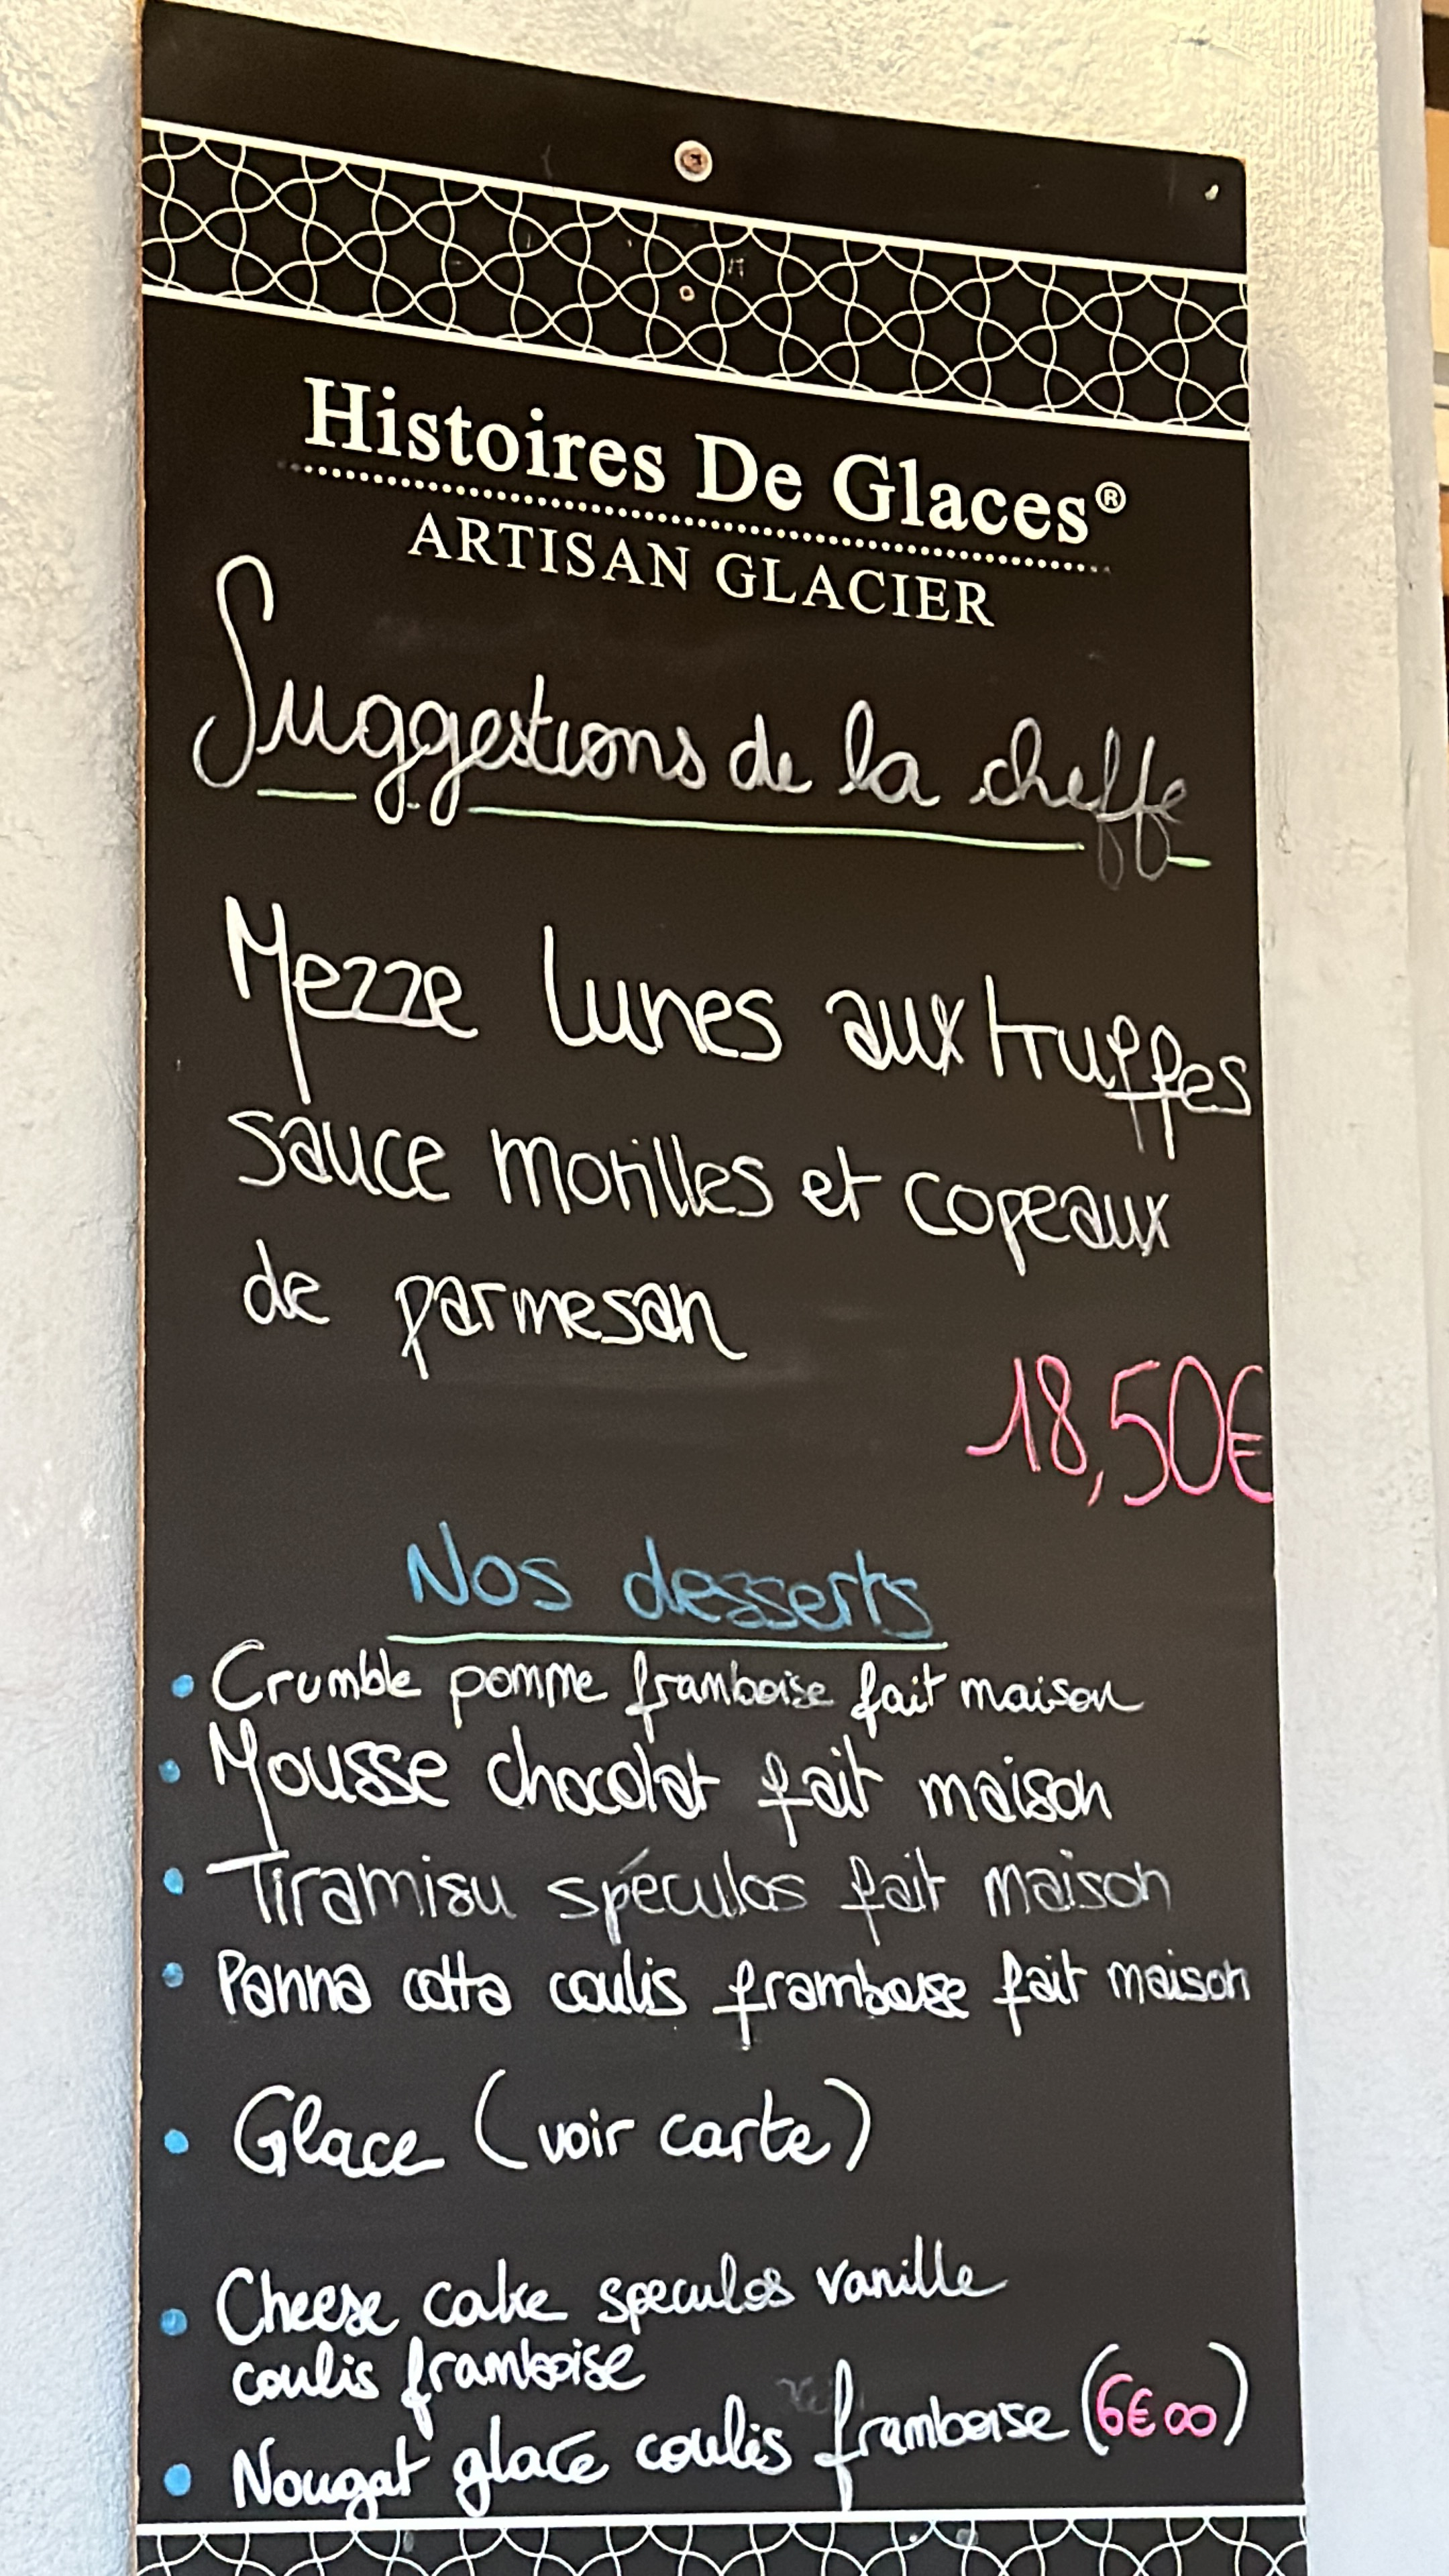 Histoires De Glaces®
ARTISAN GLACIER
Suggestions de la cheffe
Mezze lunes aux truffes
sauce morilles et copeaux
de parmesan
18,50€
Nos desserts
• Crumble pomme framboise fait maison
• Mousse chocolat fait maison
• Tiramisu spéculos fait maison
• Panna cotta coulis framboise fait maison
• Glace (voir carte)
• Cheese cake speculos vanille
coulis framboise
• Nougat glace coulis framboise (6€00)